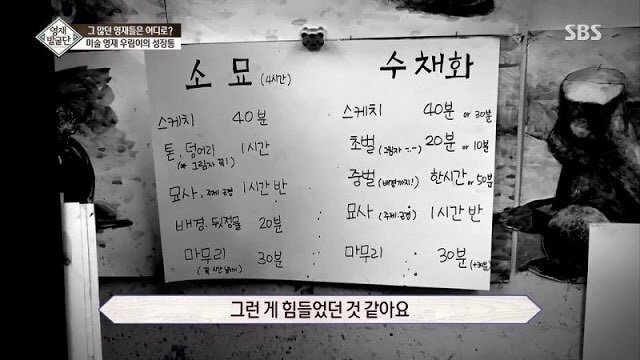 영재
발굴단
그 많던 영재들은 어디로?
미술 영재 우림이의 성장통
SBS
소묘 (4시간)
스케치 40분
톤, 덩어리 1시간
(* 그림자 꼭!)
묘사 1시간 반
배경. 뒷정물 20분
마무리 30분
수채화
스케치 40분 or 30분
초벌 (그림자 20분 or 10분
중벌 (배경까지!) 한시간 or 50분
묘사 1시간 반
마무리 30분
그런 게 힘들었던 것 같아요